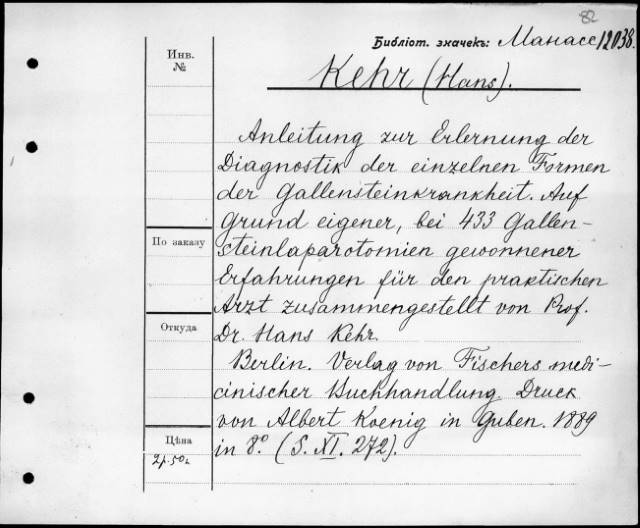 82
Библіот. значекъ: Манассе 12038.
Инв.
№
Kehr (Hans).
Anleitung zur Erlernung der
Diagnostik der einzelnen Formen
der Gallensteinkrankheit. Auf
Grund eigener, bei 433 Gallen-
steinlaparotomien gewonnener
По заказу
Erfahrungen für den praktischen
Arzt zusammengestellt von Prof.
Откуда
Dr. Hans Kehr.
Berlin. Verlag von Fischers medi-
cinischer Buchhandlung. Druck
von Albert Koenig in Guben. 1889
Цѣна
in 8º. (S. XI. 272).
2р. 50к